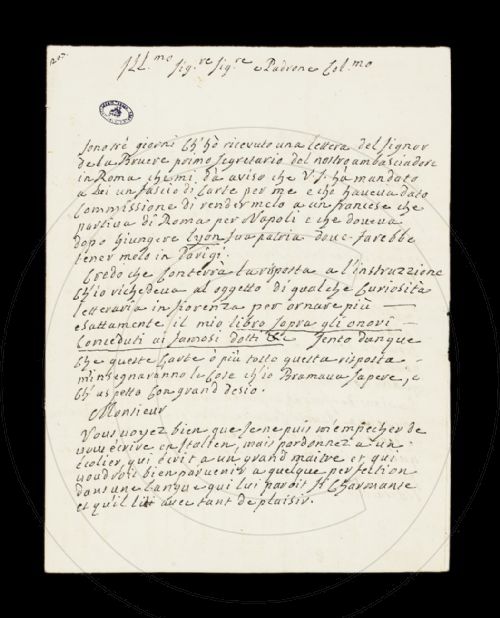 207.
Ill.mo Sig.re Sig.re e Padrone Col.mo
sono tré giorni Ch'hò ricevuto una lettera del signor
de la Bruere primo segretario del nostro ambasciadore
in Roma che mi dà aviso che V.S. ha mandato
a lei un fascio di Carte per me e che haveva dato
Commissione di rendermelo a un francese che
partiva di Roma per Napoli e che doveva
dopo giungere Lyon sua patria dove farebbe
tenermelo in Parigi.
Credo che Conterrà la risposta a l'instruzzione
Ch'io richedeva al oggetto di qualche Curiosità
letteraria in fiorenza per ornare più
esattamente il mio libro sopra gli onori
Conceduti ai famosi dotti &c sento dunque
che queste Carte ò più tosto questa risposta
m'insegnaranno le Cose ch'io Bramava sapere, e
Ch'aspetto Con gran desio.
Monsieur
Vous voyez bien que Je ne puis m'empecher de
vous écrire en Italien, mais pardonnez a un
écolier, qui écrit a un grand maitre et qui
voudroit bien parvenir a quelque perfection
dans une Langue qui lui paroit si Charmante
et qu'il lit avec tant de plaisir.